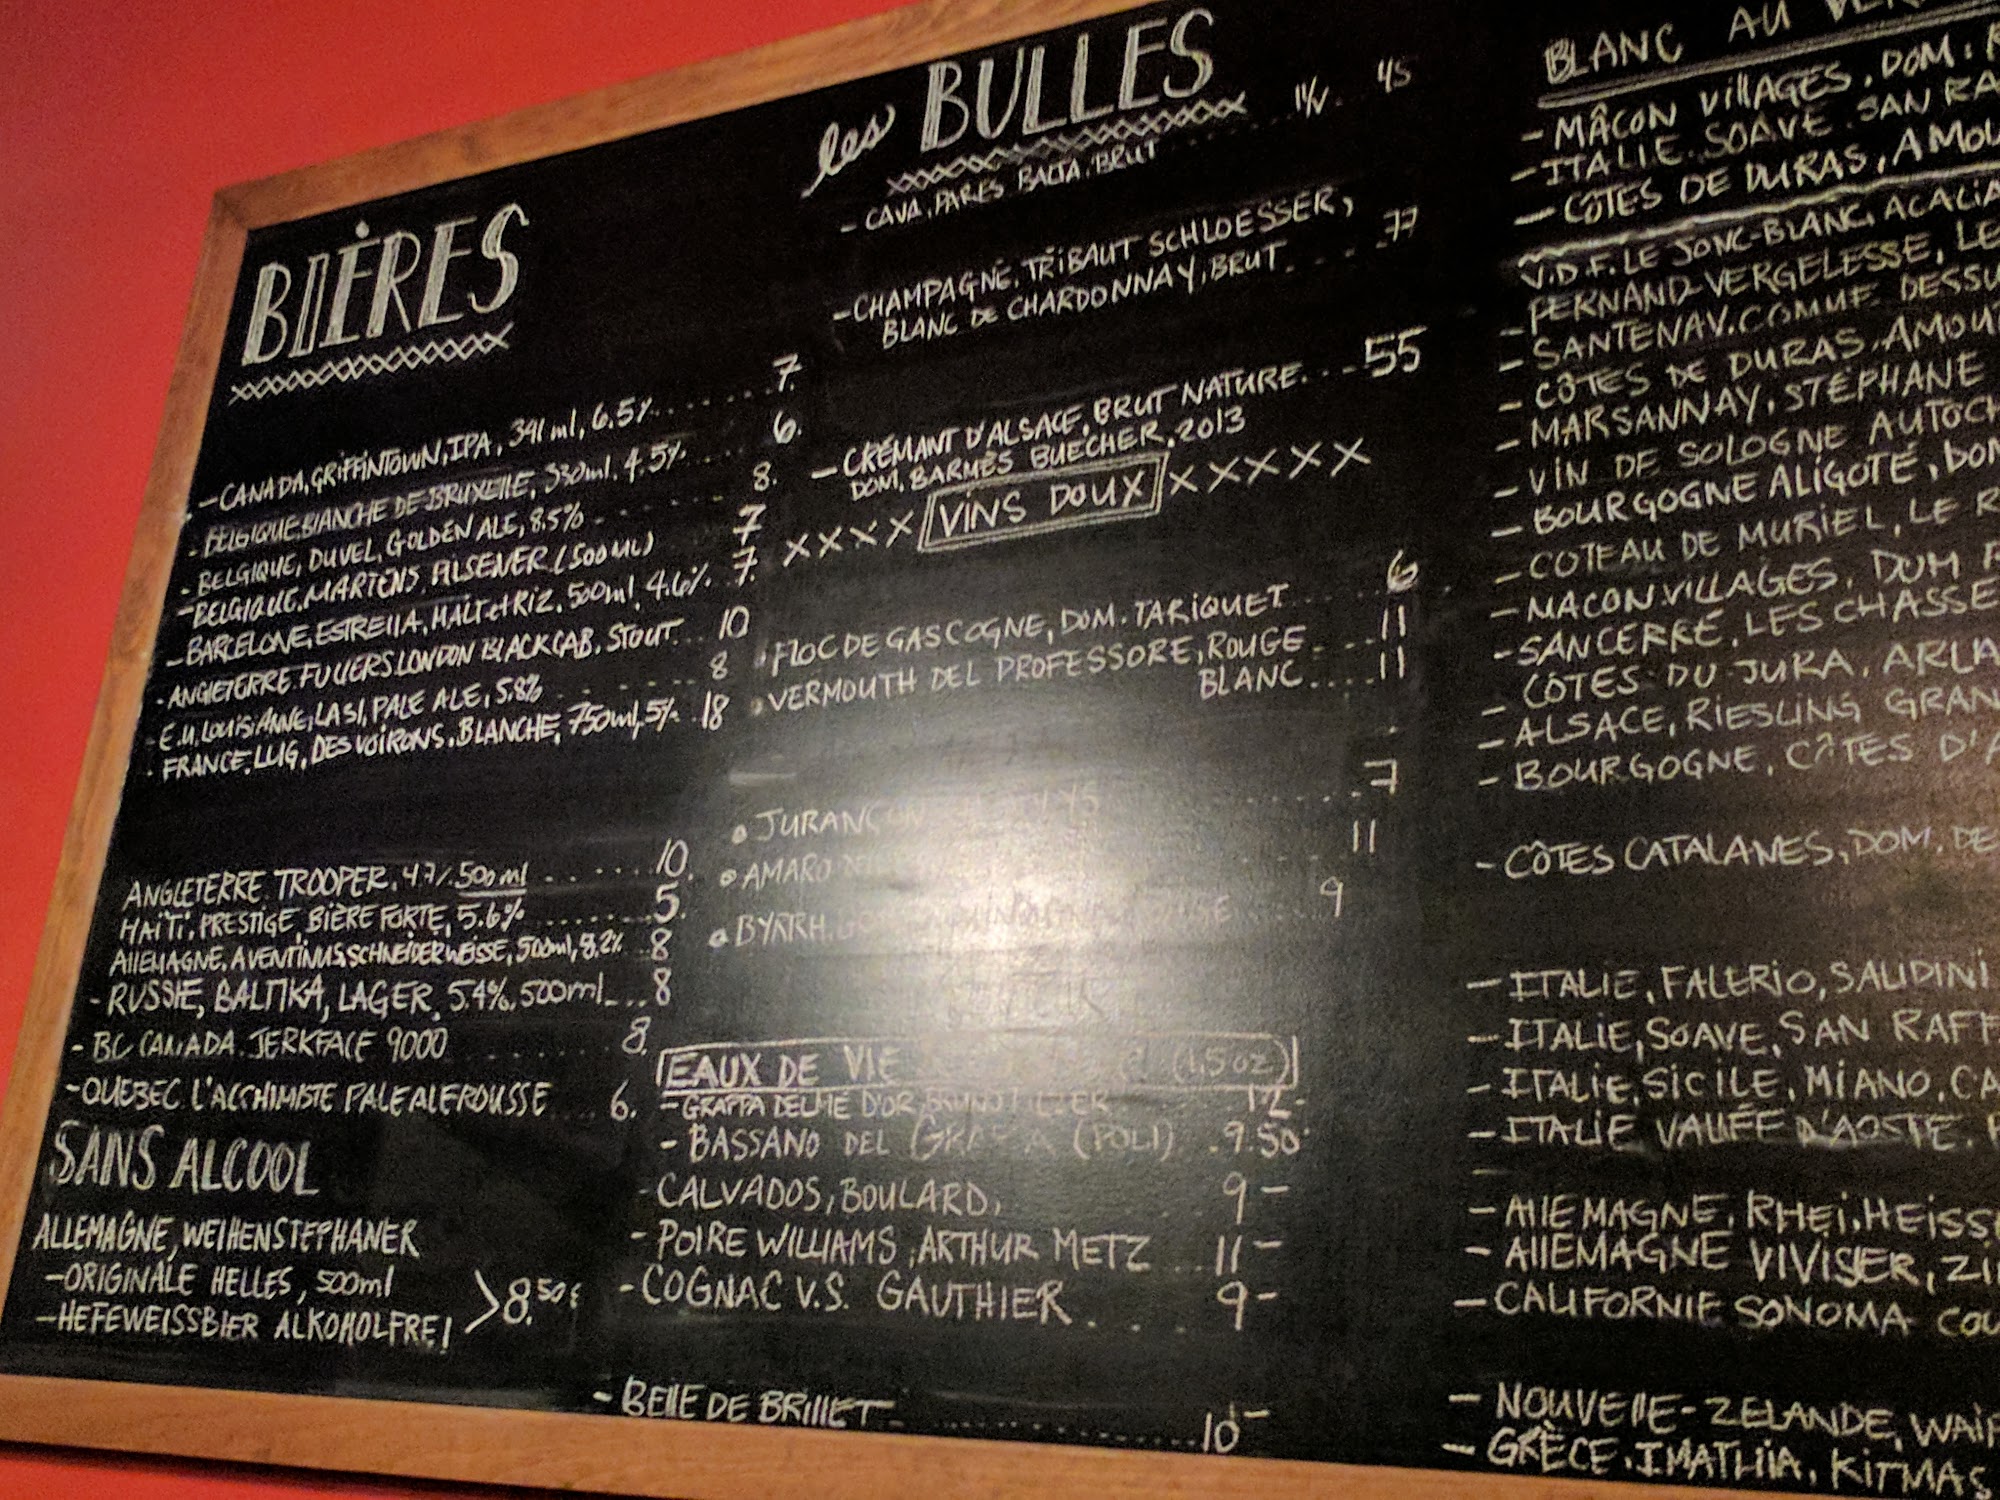 BIÈRES
- CANADA, GRIFFINTOWN, IPA, 341 ml, 6.5% ........ 7.
- BELGIQUE. BLANCHE DE BRUXELLE, 330ml, 4.5% ..... 6.
- BELGIQUE, DUVEL, GOLDEN ALE, 8.5% - ..... 8.
- BELGIQUE, MARTENS, PILSENER (500 ML) 7
- BARCELONE, ESTRELLA, MALT et RIZ, 500ml, 4.6% . 7.
- ANGLETERRE. FULLERS LONDON BLACK CAB, STOUT ... 10
- E.U, LOUISIANNE, LA 31, PALE ALE, 5.8% ........ 8
- FRANCE. LUG, DES VOIRONS, BLANCHE, 750ml, 5% . 18
ANGLETERRE. TROOPER, 4.7%. 500 ml ...... 10.
HAÏTI, PRESTIGE, BIÈRE FORTE, 5.6% ......... 5.
ALLEMAGNE, AVENTINUS SCHNEIDER WEISSE, 500ml, 8.2% 8
- RUSSIE, BALTIKA, LAGER, 5.4%, 500ml ... 8
- BC CANADA. JERKFACE 9000 ........ 8.
- QUEBEC L'ALCHIMISTE PALE ALE ROUSSE .... 6.
SANS ALCOOL
ALLEMAGNE, WEIHENSTEPHANER
- ORIGINALE HELLES, 500ml
- HEFEWEISSBIER ALKOHOLFREI > 8.50
les BULLES
- CAVA, PARES BALTA, BRUT 11/V . 45
- CHAMPAGNE, TRIBAUT SCHLOESSER,
BLANC DE CHARDONNAY, BRUT ... 77
- CRÉMANT D'ALSACE, BRUT NATURE ... 55
DOM, BARMÈS BUECHER, 2013
XXXX VINS DOUX XXXXX
FLOC DE GASCOGNE, DOM. TARIQUET 6
VERMOUTH DEL PROFESSORE, ROUGE ... 11
BLANC .... 11
JURANÇON ..... 7
AMARO ..... 11
BYRRH 9
EAUX DE VIE (1,5 oz)
- GRAPPA D'OR 12-
- BASSANO DEL (POLI) . 9.50
- CALVADOS, BOULARD, 9 -
- POIRE WILLIAMS, ARTHUR METZ .. 11 -
- COGNAC V.S. GAUTHIER .... 9 -
- BELLE DE BRILLET ............ 10 -
BLANC AU
- MÂCON VILLAGES, DOM.
- ITALIE. SOAVE. SAN
- CÔTES DE DURAS,
V.D.F. LE JONC-BLANC, ACACIA
- PERNAND-VERGELESSE,
- SANTENAY. COMME
- CÔTES DE DURAS.
- MARSANNAY, STÉPHANE
- VIN DE SOLOGNE
- BOURGOGNE ALIGOTÉ,
- COTEAU DE MURIEL, LE
- MACON VILLAGES, DOM
- SANCERRE, LES
- CÔTES DU JURA,
- ALSACE, RIESLING
- BOURGOGNE, CÔTES
- CÔTES CATALANES, DOM. DE
- ITALIE, FALERIO, SALADINI
- ITALIE, SOAVE, SAN
- ITALIE, SICILE, MIANO,
- ITALIE VALLÉE D'AOSTE.
- ALLEMAGNE,
- ALLEMAGNE
- CALIFORNIE SONOMA
- NOUVELLE-ZELANDE,
- GRÈCE,